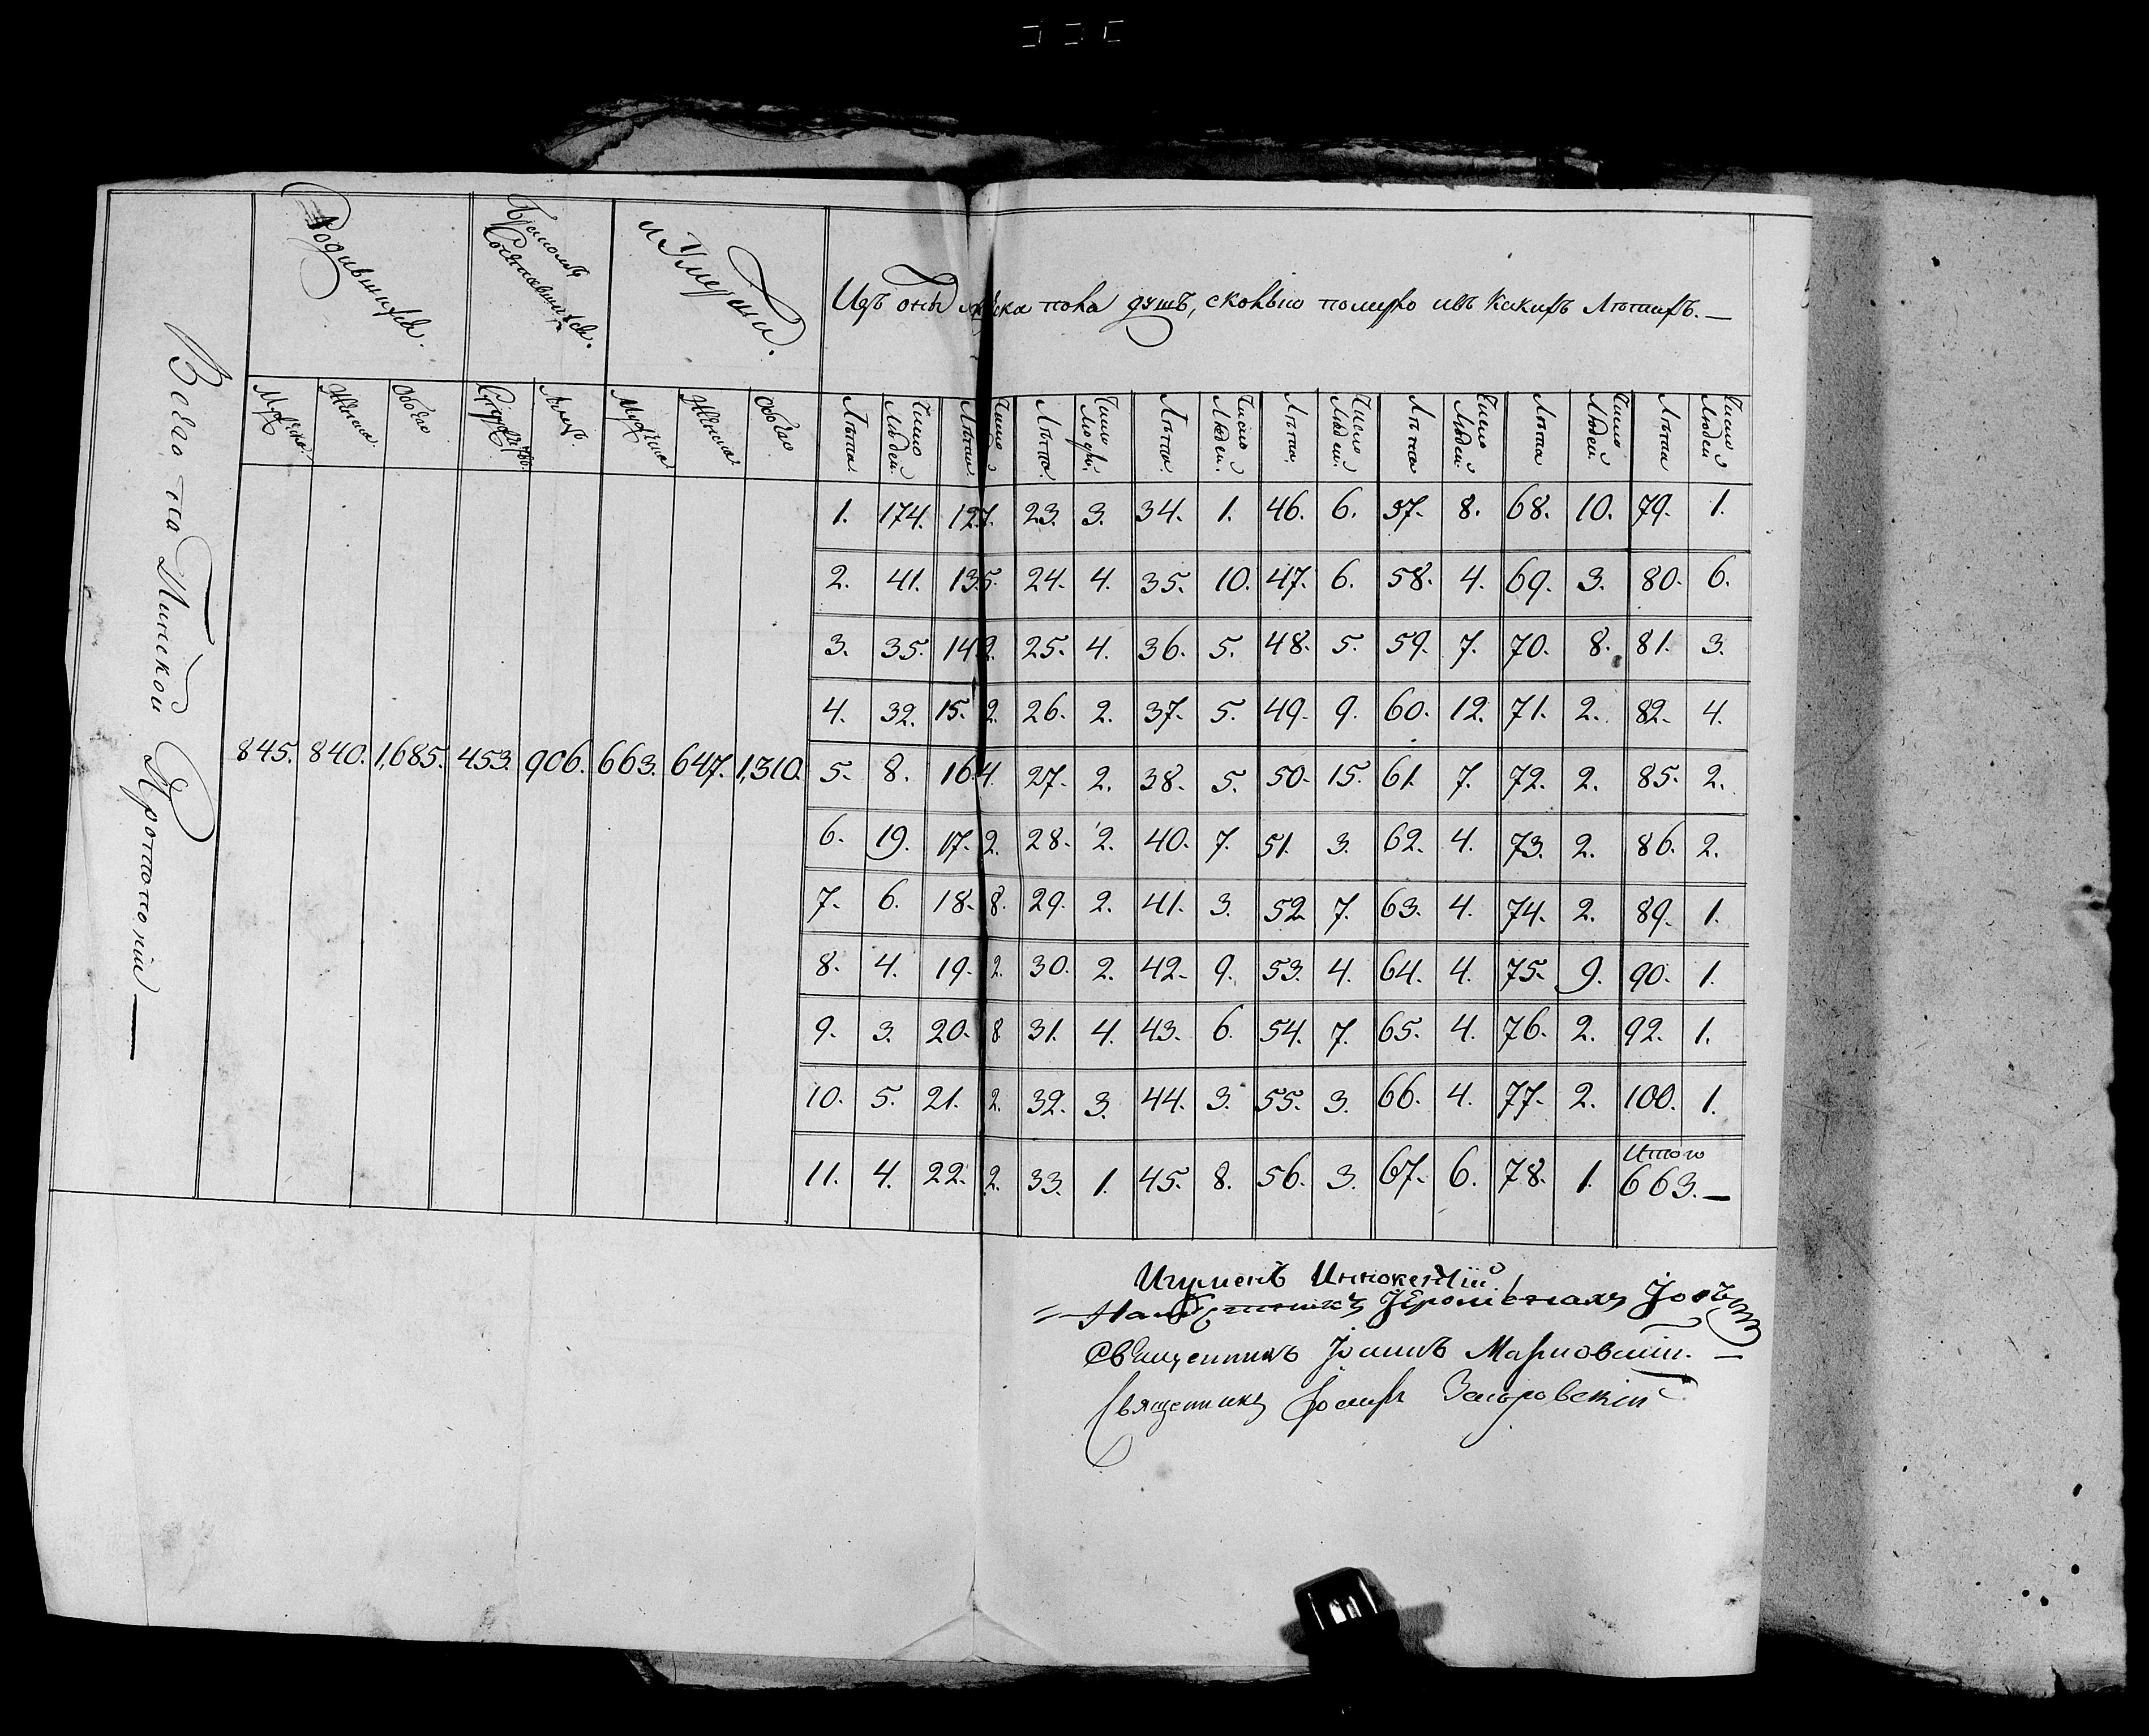 Всего на Пинской Протопопіи —
Родившихся. Бракомъ Сочетавшихся. и Умерши. Изъ оны мужска пола душъ, сколько померло и въ какихъ Лѣтахъ. —
Мужеска. Женска. Обоего Супруж: Лицъ. Мужеска Женска Обоего Лѣта. Число Людей. Лѣта. Число Лѣта. Число Людей. Лѣта. Число Людей. Лѣта. Число Людей. Лѣта Число Людей. Лѣта Число Людей. Лѣта Число Людей
1. 174. 12. 7. 23. 3. 34. 1. 46. 6. 57. 8. 68. 10. 79. 1.
2. 41. 13. 5. 24. 4. 35. 10. 47. 6. 58. 4. 69. 3. 80. 6.
3. 35. 14. 2. 25. 4. 36. 5. 48. 5. 59. 7. 70. 8. 81. 3.
4. 32. 15. 2. 26. 2. 37. 5. 49. 9. 60. 12. 71. 2. 82. 4.
845. 840. 1,685. 453. 906. 663. 647. 1,310. 5. 8. 16. 4. 27. 2. 38. 5. 50. 15. 61. 7. 72. 2. 85. 2.
6. 19. 17. 2. 28. 2. 40. 7. 51. 3. 62. 4. 73. 2. 86. 2.
7. 6. 18. 8. 29. 2. 41. 3. 52. 7. 63. 4. 74. 2. 89. 1.
8. 4. 19. 2. 30. 2. 42. 9. 53. 4. 64. 4. 75. 9. 90. 1.
9. 3. 20. 8 31. 4. 43. 6. 54. 7. 65. 4. 76. 2. 92. 1.
10. 5. 21. 2. 32. 3. 44. 3. 55. 3. 66. 4. 77. 2. 100. 1.
11. 4. 22. 2. 33. 1. 45. 8. 56. 3. 67. 6. 78. 1. Итого 663. —
Игуменъ Иннокентій
Іеромонахъ
Священникъ Іоаннъ
Священникъ Іосифъ